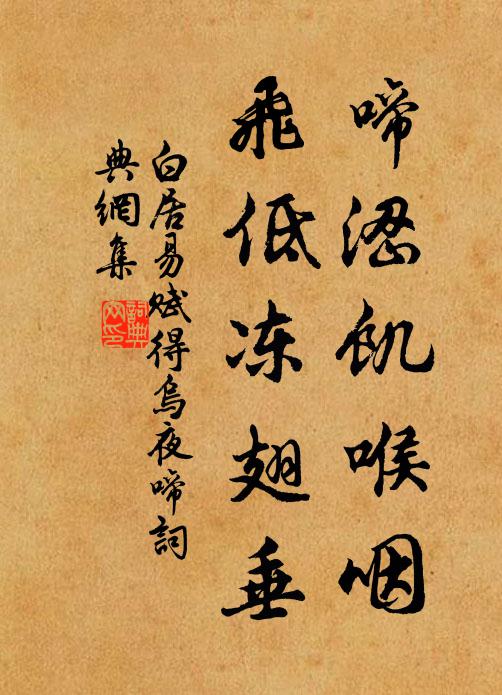 啼涩飢喉咽
飛低冻翅垂
白居易賦得烏夜啼詞
典網集
詞典
网印